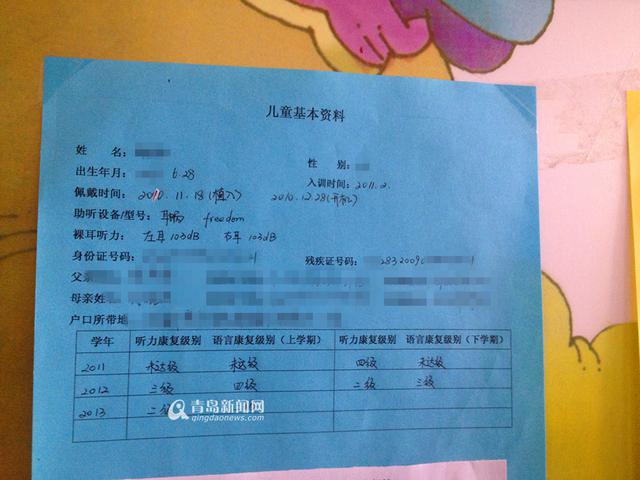 儿童基本资料
姓 名:
性 别:
出生年月: 6.28
入训时间:2011.2.
佩戴时间: 2010.11.18(植入) 2010.12.28(开机)
助听设备/型号: 耳蜗 freedom
裸耳听力: 左耳 103dB 右耳 103dB
身份证号码:
残疾证号码:
父亲
母亲姓
户口所带地
学年 听力康复级别 语言康复级别(上学期) 听力康复级别 语言康复级别(下学期)
2011 未达级 未达级 四级 未达级
2012 三级 四级 二级 三级
2013 二级
青岛新闻网
qingdaonews.com